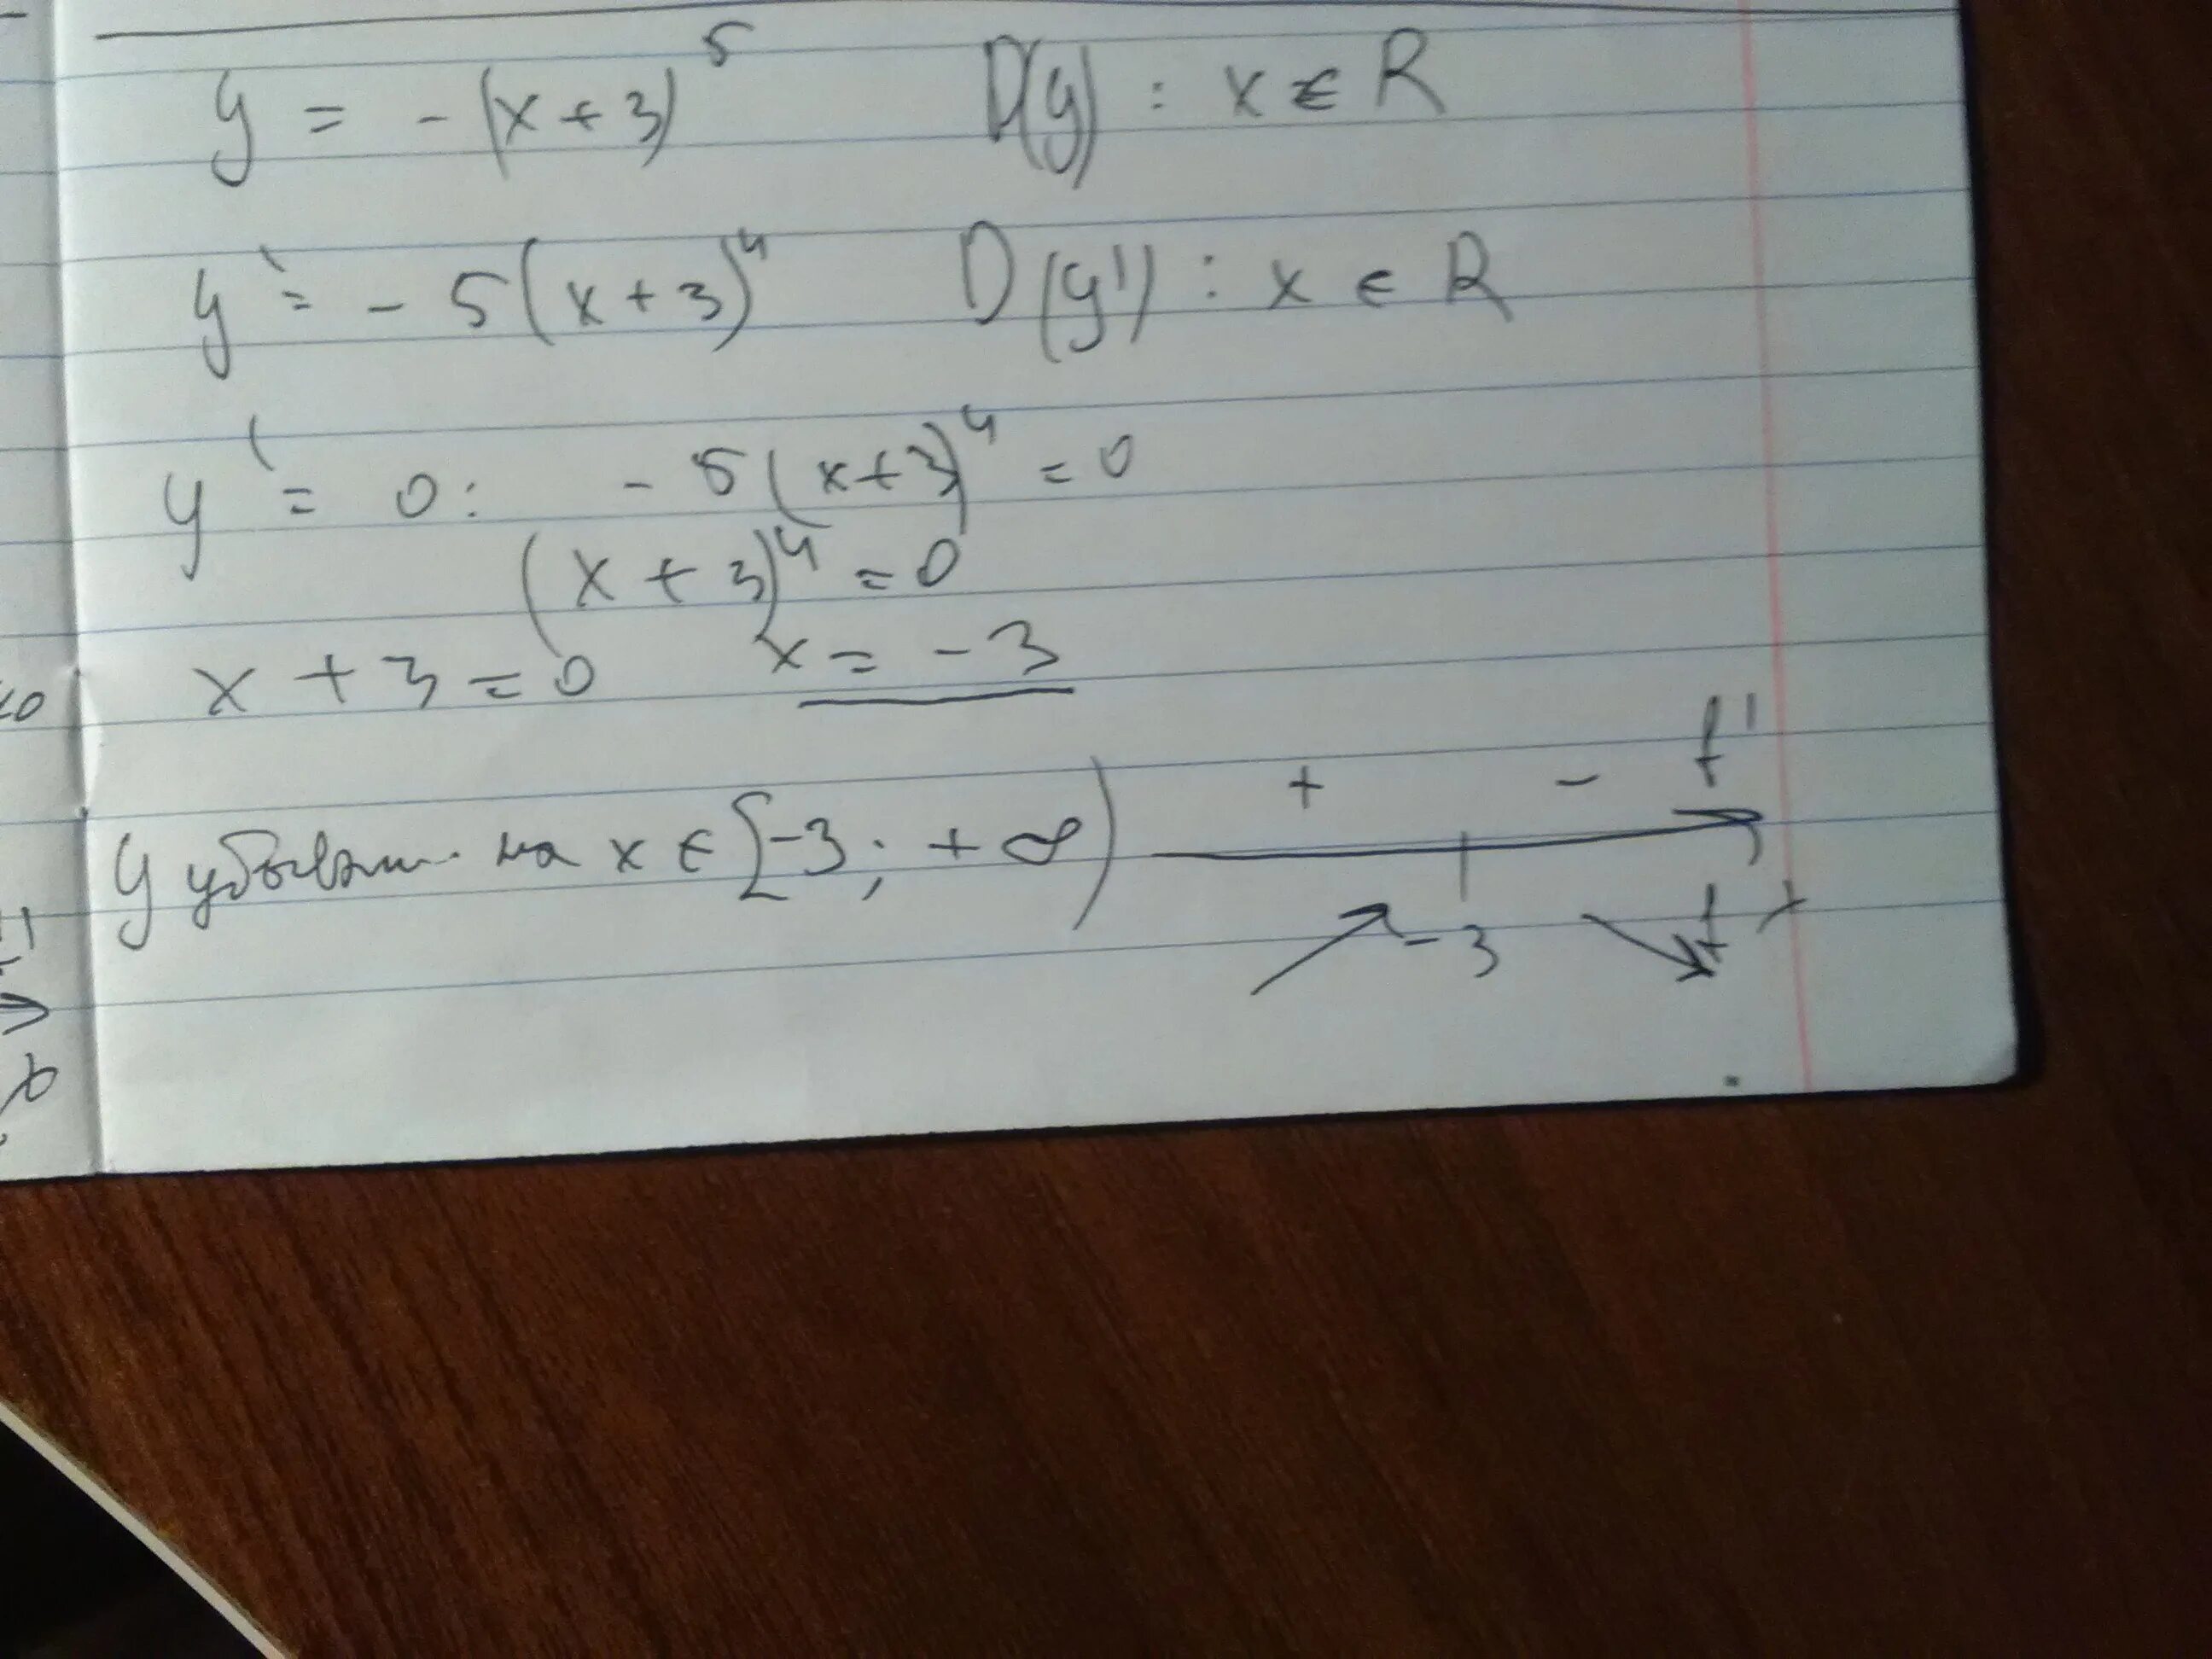 y = -(x+3)^5 D(y) : x ∈ R
y' = -5(x+3)^4 D(y') : x ∈ R
y' = 0: -5(x+3)^4 = 0
(x+3)^4 = 0
x+3=0 x = -3
y убывает на x ∈ [-3; +∞)
+ - f'
-3 f x